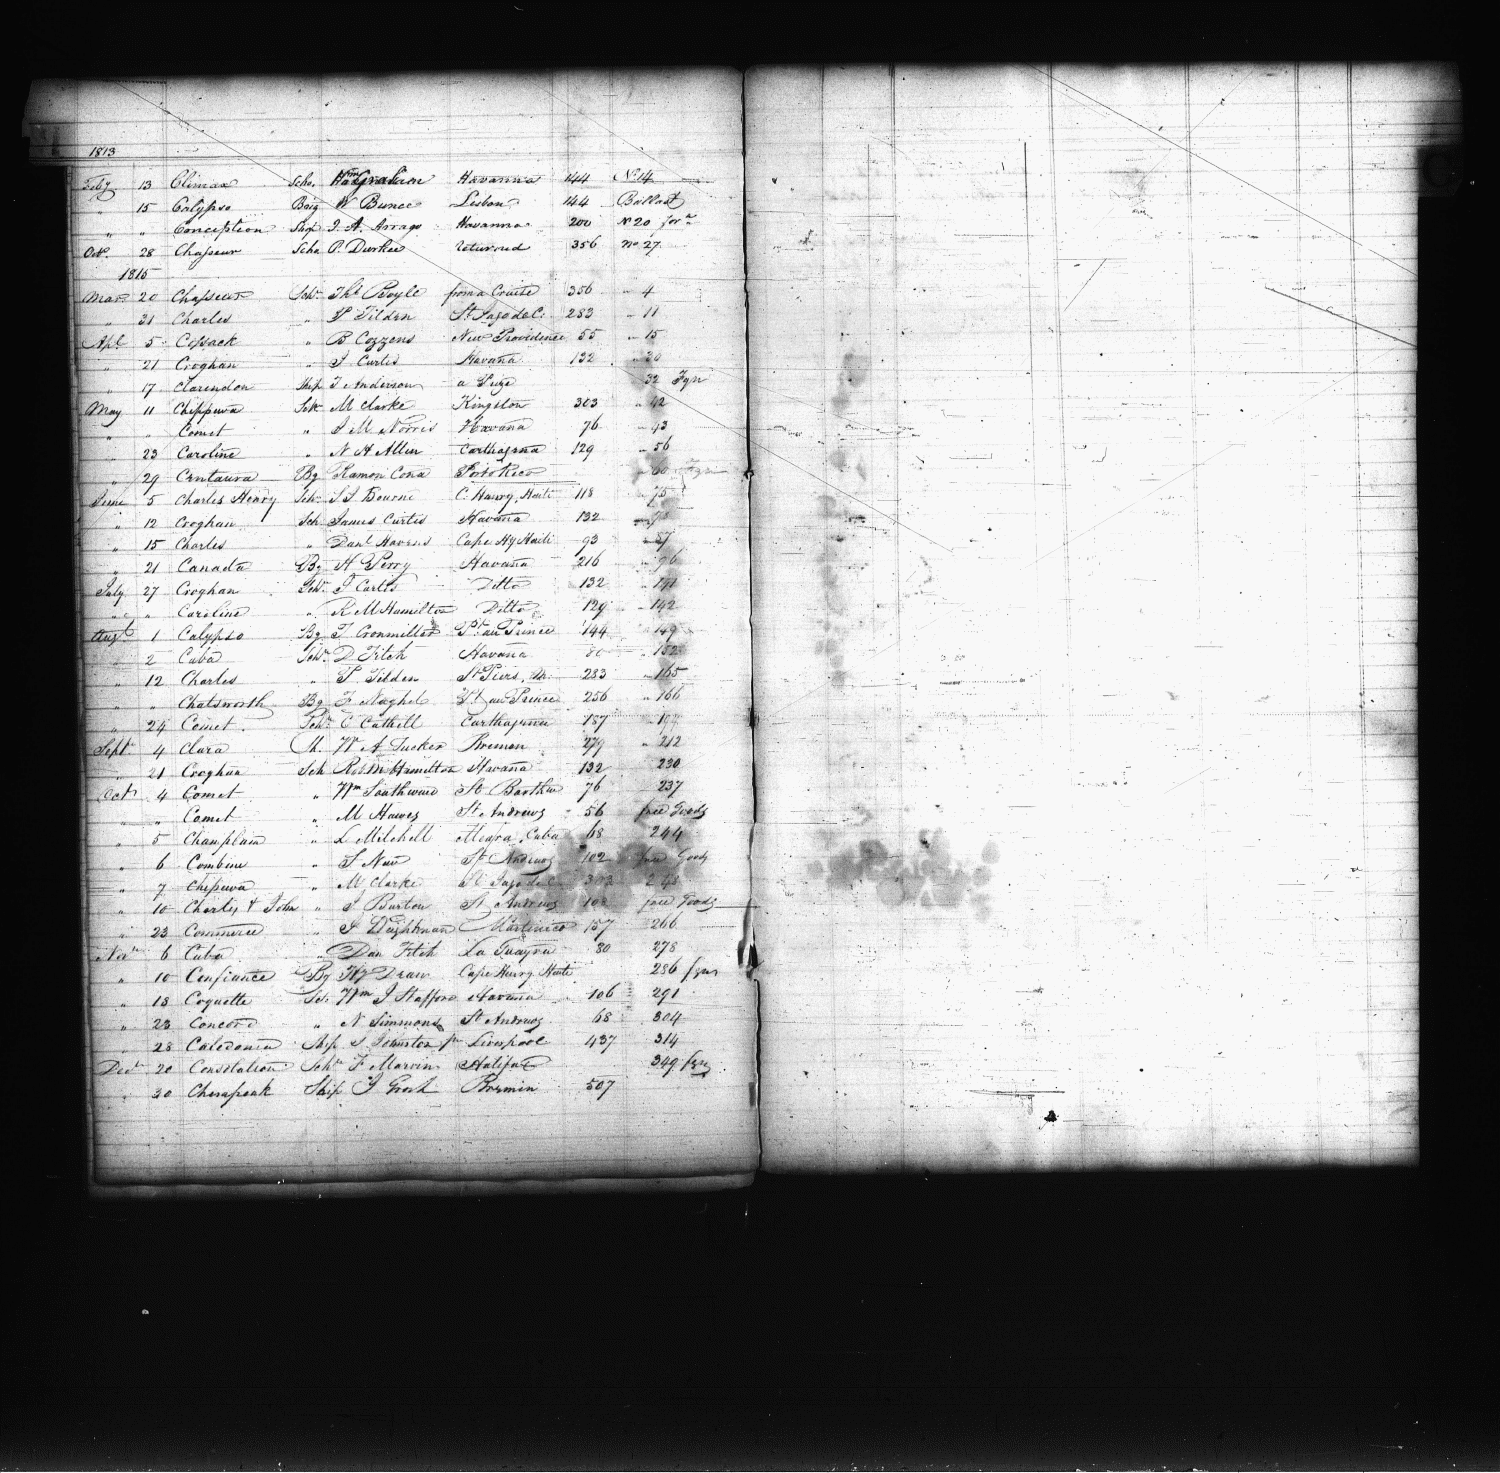 1813
Feby 13 Climax Scho. Wm Graham Havanna 144 No 14
" 15 Calypso Brig W Bunce Lisbon 144 Ballast
" " Conception Ship J. A. Arrago Havanna 200 No 20 forn
Oct. 28 Chasseur Scho P. Durkee returned 356 No 27
1815
Mar 20 Chasseur Schr Thos Boyle from a Cruise 356 " 4
" 31 Charles " P Tilden St Jago de C. 283 " 11
Apl 5 Cossack " B Cozzens New Providence 55 " 15
" 21 Croghan " J Curtis Havana 132 " 30
" 17 Clarendon Ship J Anderson a Prize 32 Fgn
May 11 Chippewa Schr M Clarke Kingston 303 " 42
" " Comet " J M Norris Havana 76 " 43
" 23 Caroline " N H Allen Carthagena 129 " 56
" 29 Centaura Bg Ramon Cona Porto Rico " 60 Fgn
June 5 Charles Henry Schr S J Bourne C. Henry, Haiti 118 " 75
" 12 Croghan Sch James Curtis Havana 132
" 15 Charles " Danl Havens Cape Hy Haiti 93 " 87
" 21 Canada Bg H Perry Havana 216 " 96
July 27 Croghan Schr J Curtis Ditto 132 " 141
" " Caroline " R M Hamilton Ditto 129 " 142
Augt 1 Calypso Bg J Cronmiller Pt au Prince 144 " 149
" 2 Cuba Schr D Fitch Havana 80 " 152
" 12 Charles " P Tilden St Piers, M. 283 " 165
" " Chatsworth Bg F Naghel Pt au Prince 256 " 166
" 24 Comet Schr C Cathell Carthagena 187
Sept 4 Clara Sh. W A Tucker Bremen 279 " 212
" 21 Croghan Sch Rob M Hamilton Havana 132 230
Oct 4 Comet " Wm Southward St Barthw 76 237
" " Comet " M Hawes St Andrews 56 free Goods
" 5 Champlain " L Mitchell Cuba 68 244
" 6 Combine " J New St Andrews 102 free Goods
" 7 Chipewa " M Clarke St Jago de C 303 248
" 10 Charles & John " J Burton St Andrews free Goods
" 23 Commerce " J Weightman Martinico 157 266
Novr 6 Cuba " Dan Fitch La Guayra 80 278
" 10 Confiance Bg Hy Draw Cape Henry Haiti 286 fgn
" 13 Coquette Sch. Wm J Stafford Havana 106 291
" 23 Concord " N Simmons St Andrews 68 304
" 28 Caledonia Ship J Johnston jr Liverpool 437 314
Decr 20 Constelation Schr F Marvin Halifax 349 fgn
" 30 Chesapeak Ship J Grosh Bremin 507